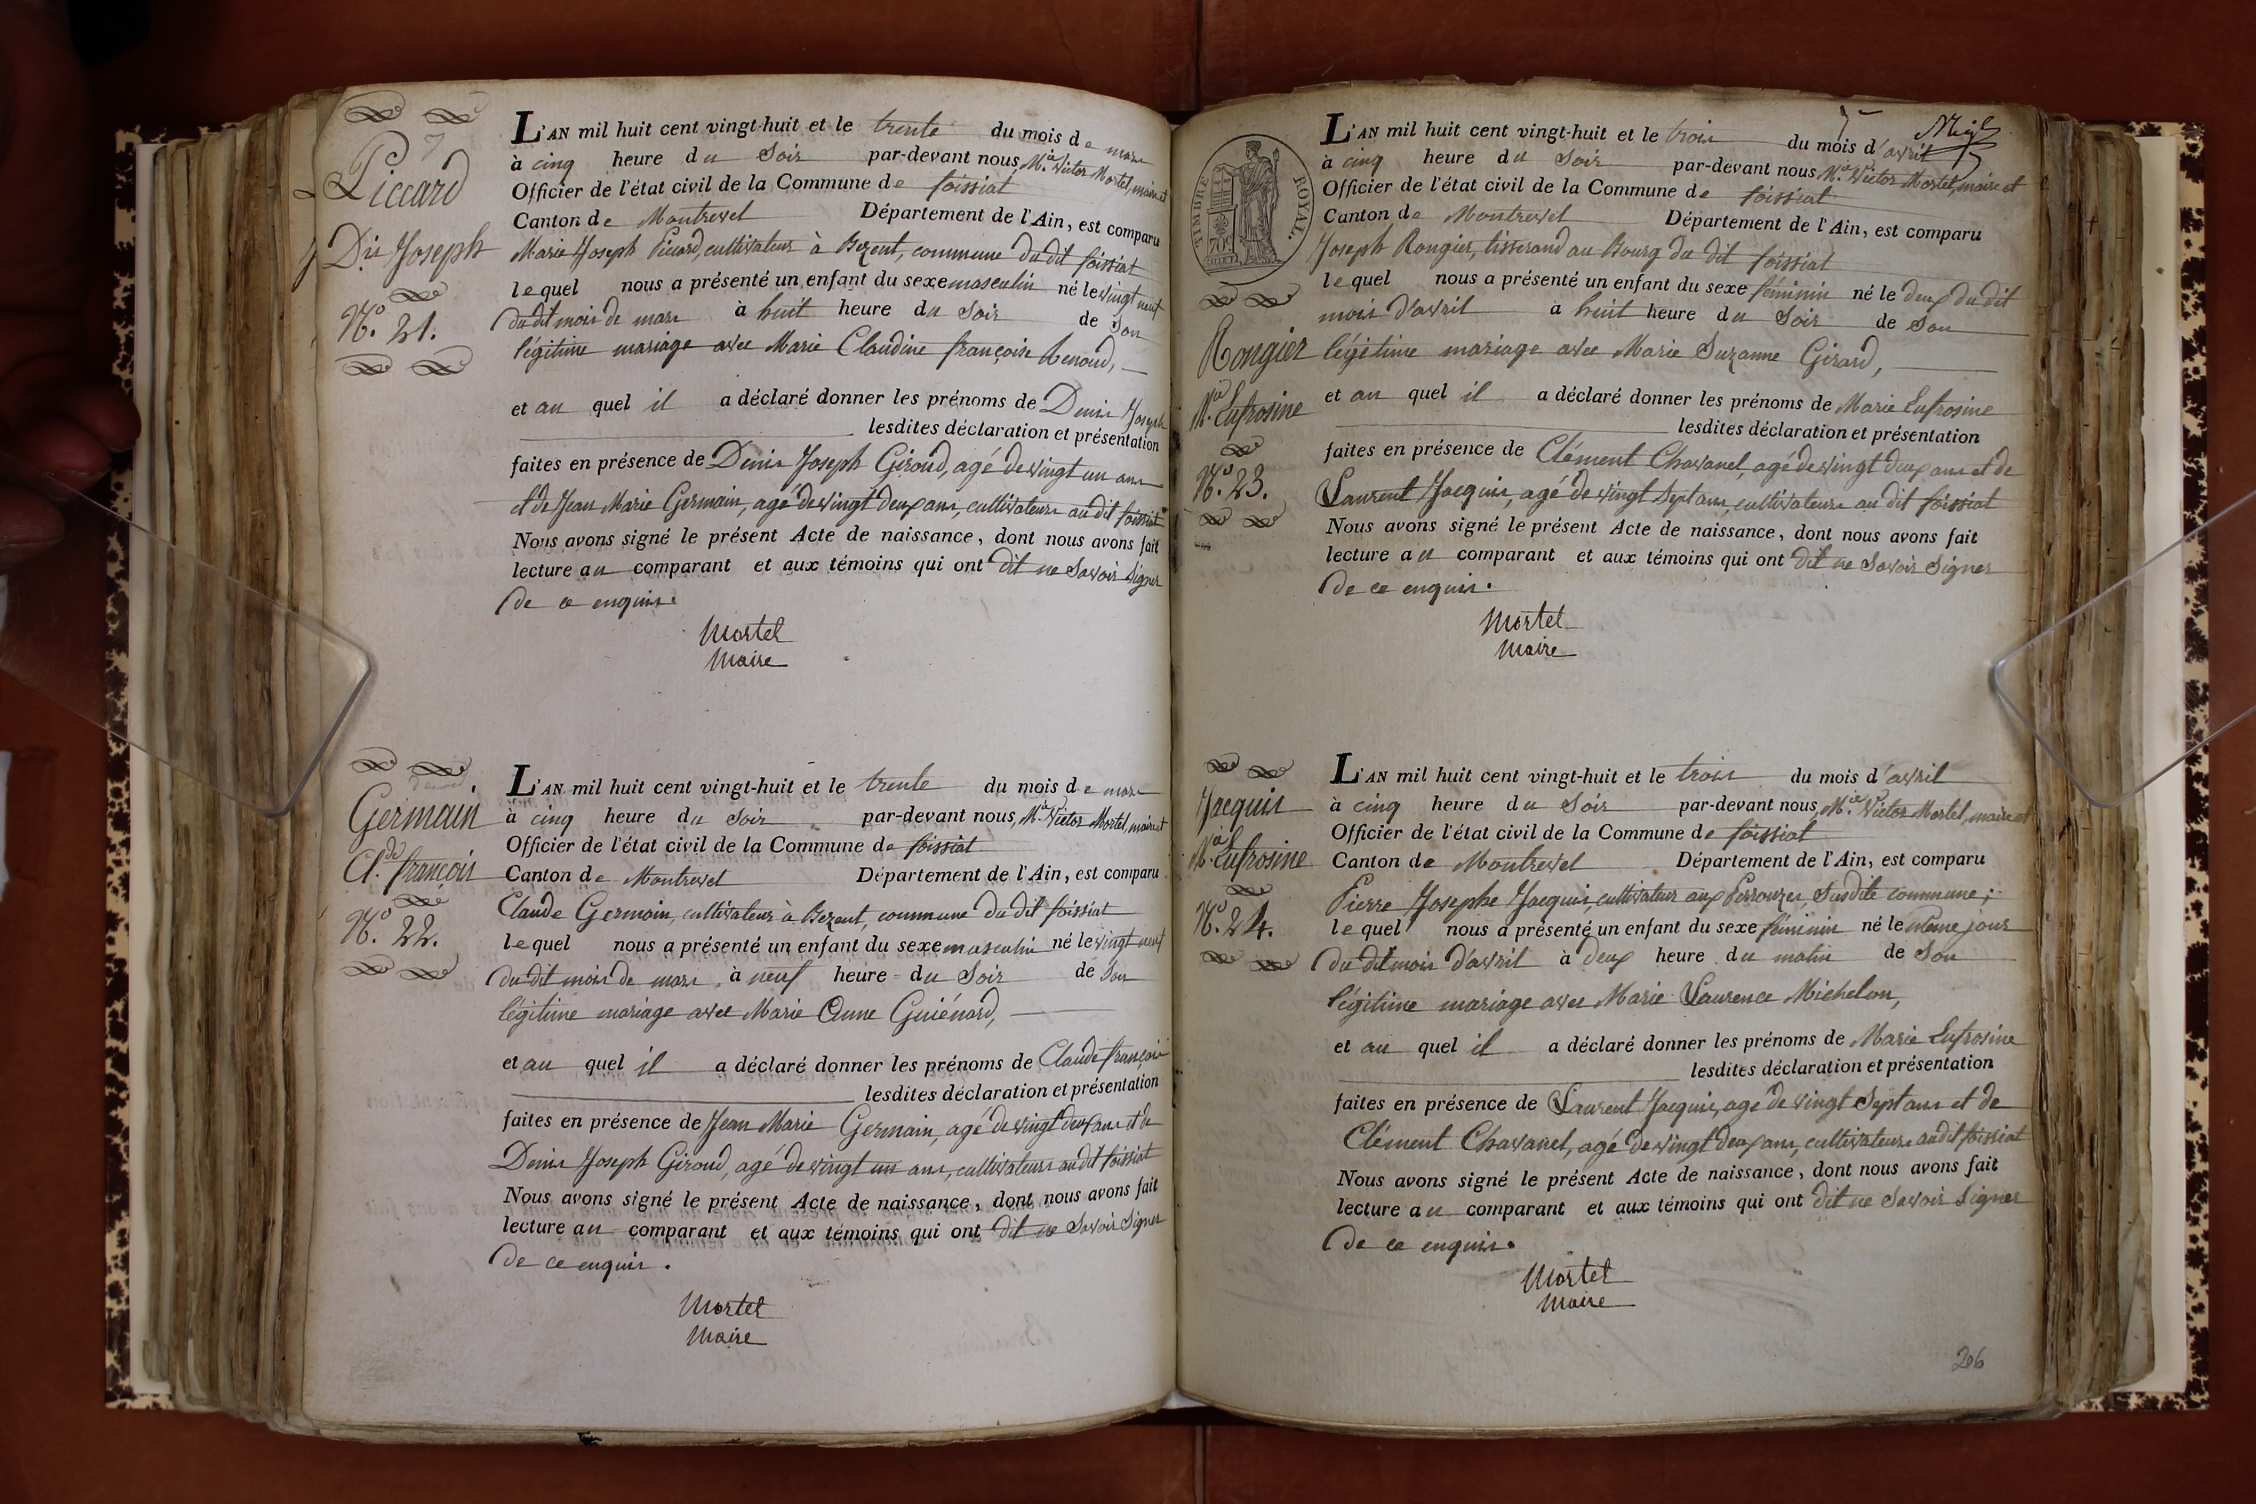 Piccard
Dis Joseph
N.o 21.
L'AN mil huit cent vingt-huit et le trente du mois de mars
à cinq heure du Soir par-devant nous, M.ie Victor Mortel, maire et
Officier de l'état civil de la Commune de foissiat
Canton de Montrevel Département de l'Ain, est comparu
Marie Joseph Picard, cultivateur à Bezent, commune du dit foissiat
lequel nous a présenté un enfant du sexe masculin né le vingt neuf
du dit mois de mars à huit heure du Soir de Son
légitime mariage avec Marie Claudine françoise Renoud,
et au quel il a déclaré donner les prénoms de Denis Joseph
lesdites déclaration et présentation
faites en présence de Denis Joseph Giroud, agé de vingt un ans
et de Jean Marie Germain, agé de vingt deux ans, cultivateurs au dit foissiat
Nous avons signé le présent Acte de naissance, dont nous avons fait
lecture au comparant et aux témoins qui ont dit ne Savoir Signer
de ce enquis.
Mortel
Maire
Germain
Cl.de françois
N.o 22.
L'AN mil huit cent vingt-huit et le trente du mois de mars
à cinq heure du Soir par-devant nous, M.ie Victor Mortel, maire et
Officier de l'état civil de la Commune de foissiat
Canton de Montrevel Département de l'Ain, est comparu
Claude Germain, cultivateur à Bezent, commune du dit foissiat
lequel nous a présenté un enfant du sexe masculin né le vingt neuf
du dit mois de mars à neuf heure du Soir de Son
légitime mariage avec Marie Anne Guiénard,
et au quel il a déclaré donner les prénoms de Claude françois
lesdites déclaration et présentation
faites en présence de Jean Marie Germain, agé de vingt deux ans et de
Denis Joseph Giroud, agé de vingt un ans, cultivateurs au dit foissiat
Nous avons signé le présent Acte de naissance, dont nous avons fait
lecture au comparant et aux témoins qui ont dit ne Savoir Signer
de ce enquis.
Mortel
Maire
TIMBRE ROYAL.
Rongier
M.ie Eufrosine
N.o 23.
L'AN mil huit cent vingt-huit et le trois du mois d'avril
à cinq heure du Soir par-devant nous, M.ie Victor Mortel, maire et
Officier de l'état civil de la Commune de foissiat
Canton de Montrevel Département de l'Ain, est comparu
Joseph Rongier, tisserand au Bourg du dit foissiat
lequel nous a présenté un enfant du sexe féminin né le deux du dit
mois d'avril à huit heure du Soir de Son
légitime mariage avec Marie Suzanne Girard,
et au quel il a déclaré donner les prénoms de Marie Eufrosine
lesdites déclaration et présentation
faites en présence de Clément Chavanel, agé de vingt deux ans et de
Laurent Jacquis, agé de vingt Sept ans, cultivateurs au dit foissiat
Nous avons signé le présent Acte de naissance, dont nous avons fait
lecture au comparant et aux témoins qui ont dit ne Savoir Signer
de ce enquis.
Mortel
Maire
Jacquis
M.ie Eufrosine
N.o 24.
L'AN mil huit cent vingt-huit et le trois du mois d'avril
à cinq heure du Soir par-devant nous, M.ie Victor Mortel, maire et
Officier de l'état civil de la Commune de foissiat
Canton de Montrevel Département de l'Ain, est comparu
Pierre Josephe Jacquis, cultivateur aux Perrouzes, Susdite commune;
lequel nous a présenté un enfant du sexe féminin né le même jour
du dit mois d'avril à deux heure du matin de Son
légitime mariage avec Marie Laurence Michelon,
et au quel il a déclaré donner les prénoms de Marie Eufrosine
lesdites déclaration et présentation
faites en présence de Laurent Jacquis, agé de vingt Sept ans et de
Clément Chavanel, agé de vingt deux ans, cultivateurs au dit foissiat
Nous avons signé le présent Acte de naissance, dont nous avons fait
lecture au comparant et aux témoins qui ont dit ne Savoir Signer
de ce enquis.
Mortel
Maire
206